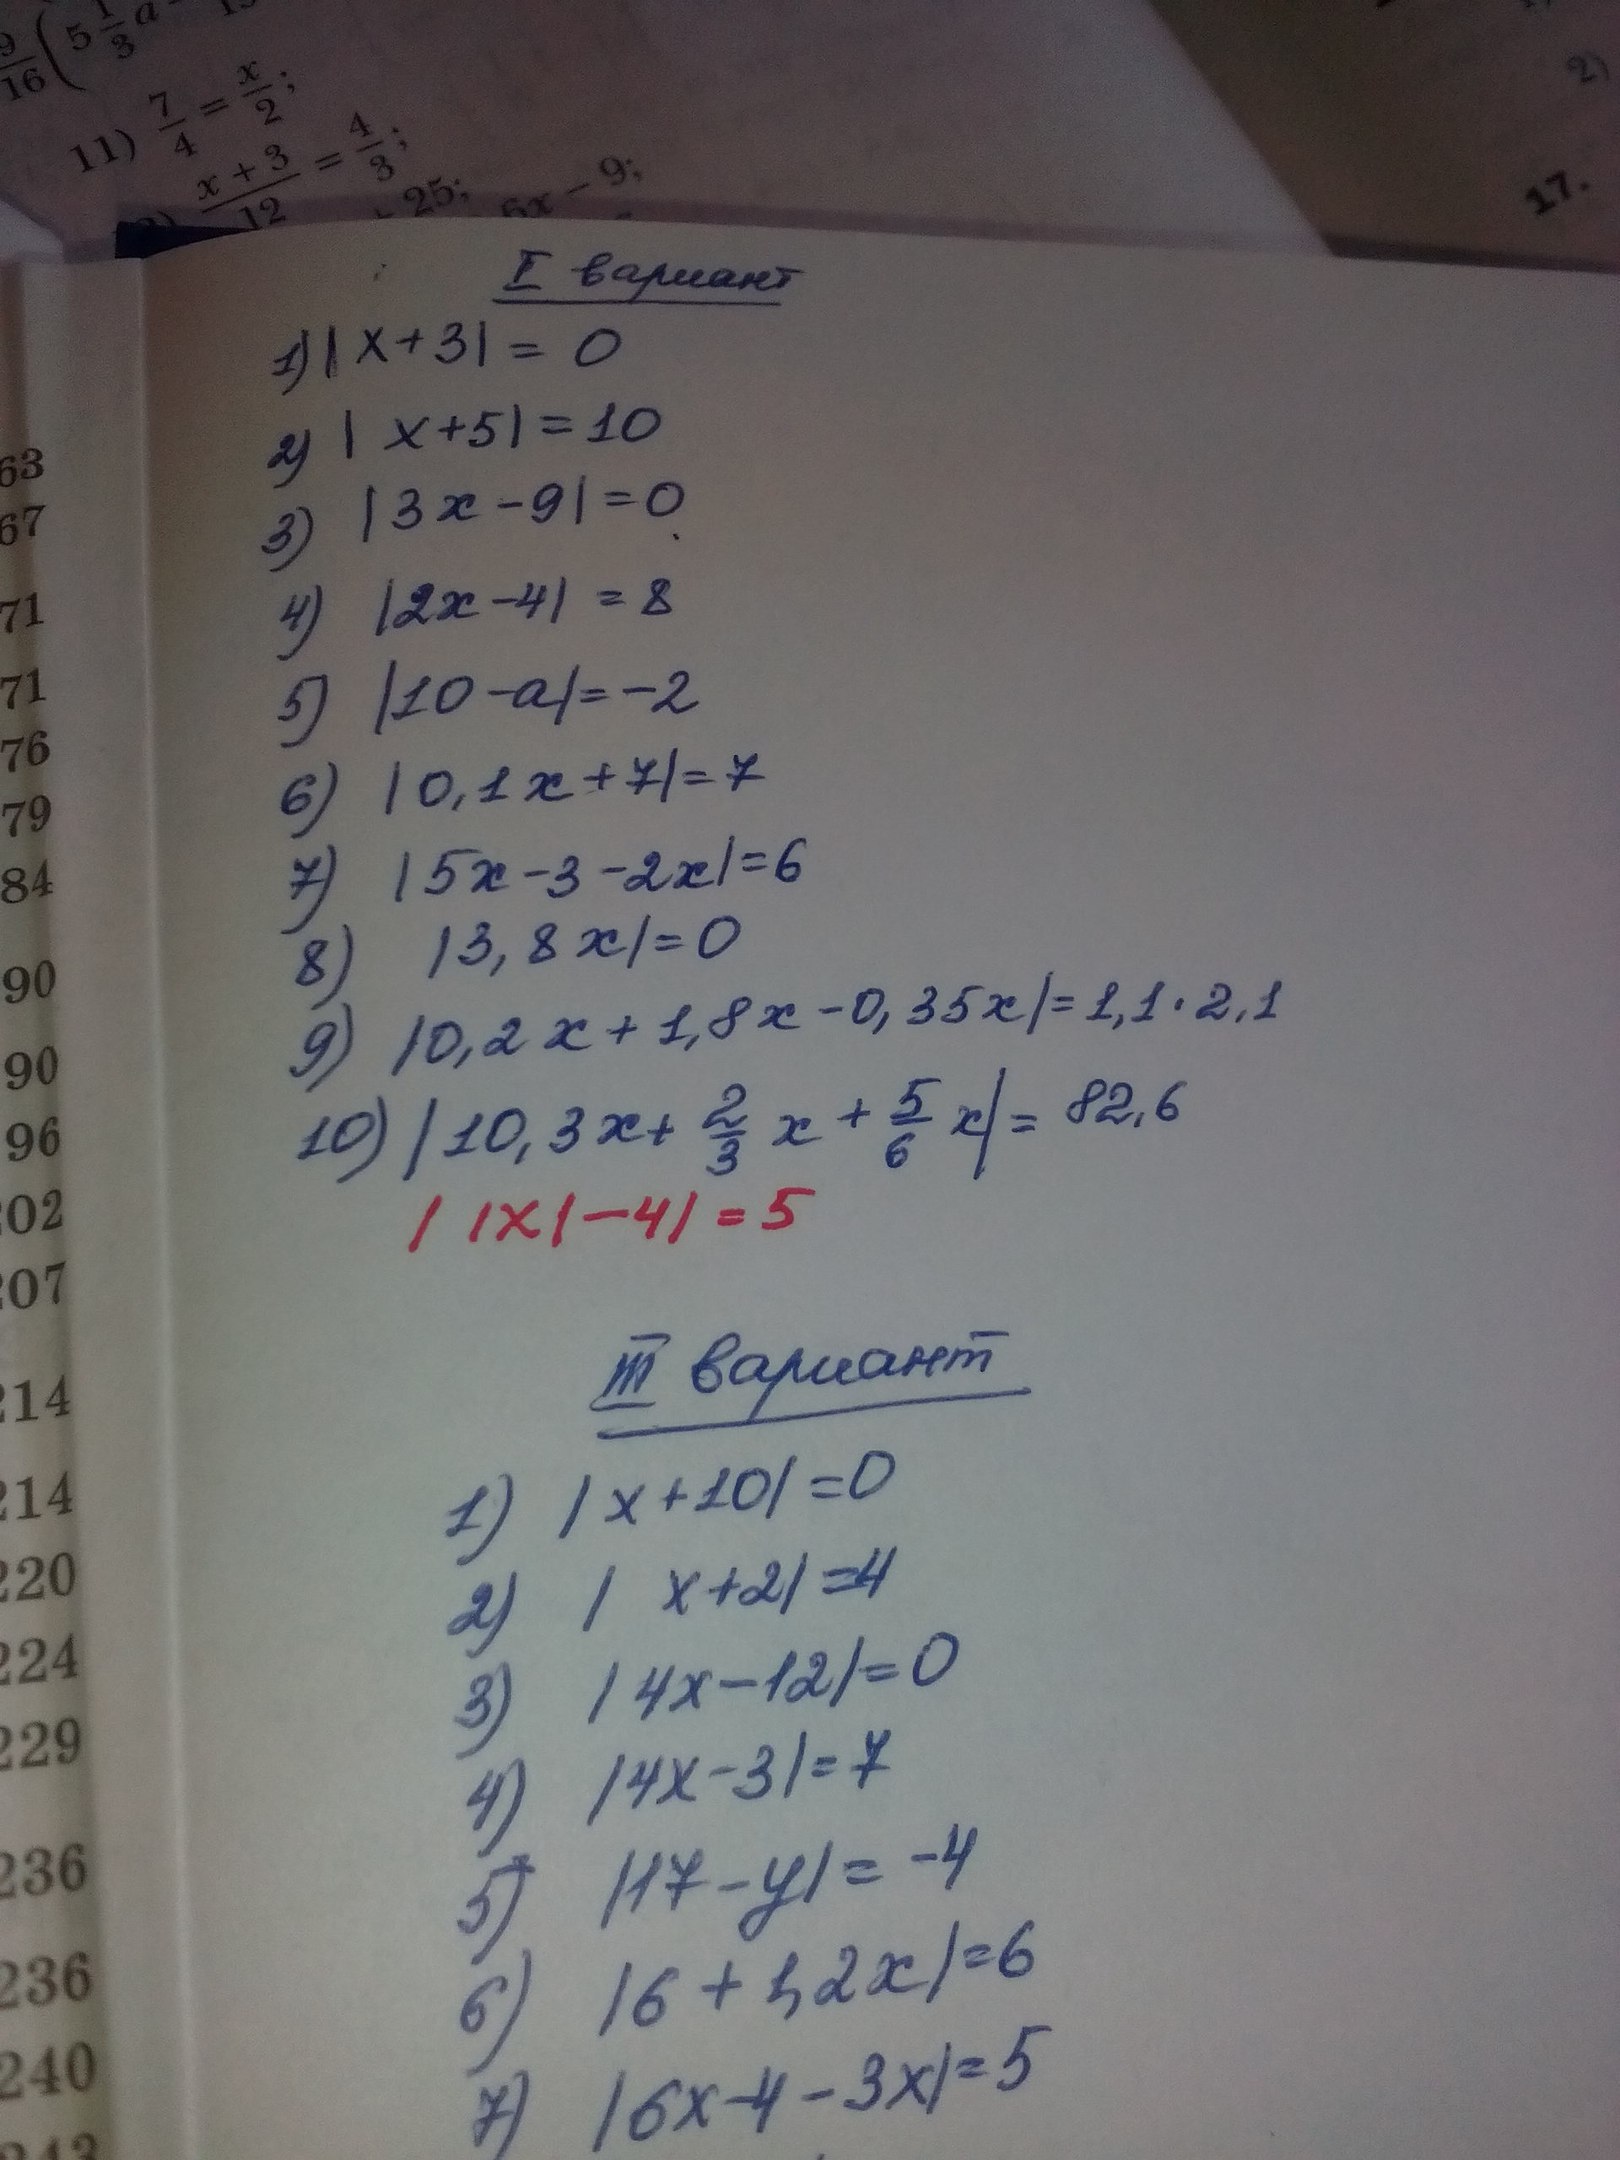 9/16 (5 1/3 a
11) 7/4 = x/2;
x + 3/12 = 4/3;
+ 25;
6x − 9;
2)
17.
63
67
71
71
76
79
84
90
90
96
202
207
214
214
220
224
229
236
236
240
243
I вариант
1) |x+3| = 0
2) |x+5| = 10
3) |3x-9| = 0
4) |2x-4| = 8
5) |10-a| = -2
6) |0,1x+7| = 7
7) |5x-3-2x| = 6
8) |3,8x| = 0
9) |0,2x+1,8x-0,35x| = 1,1·2,1
10) |10,3x+ 2/3 x + 5/6 x| = 82,6
| |x| -4| = 5
III вариант
1) |x+10| = 0
2) |x+2| = 4
3) |4x-12| = 0
4) |4x-3| = 7
5) |17-y| = -4
6) |6+1,2x| = 6
7) |6x-4-3x| = 5